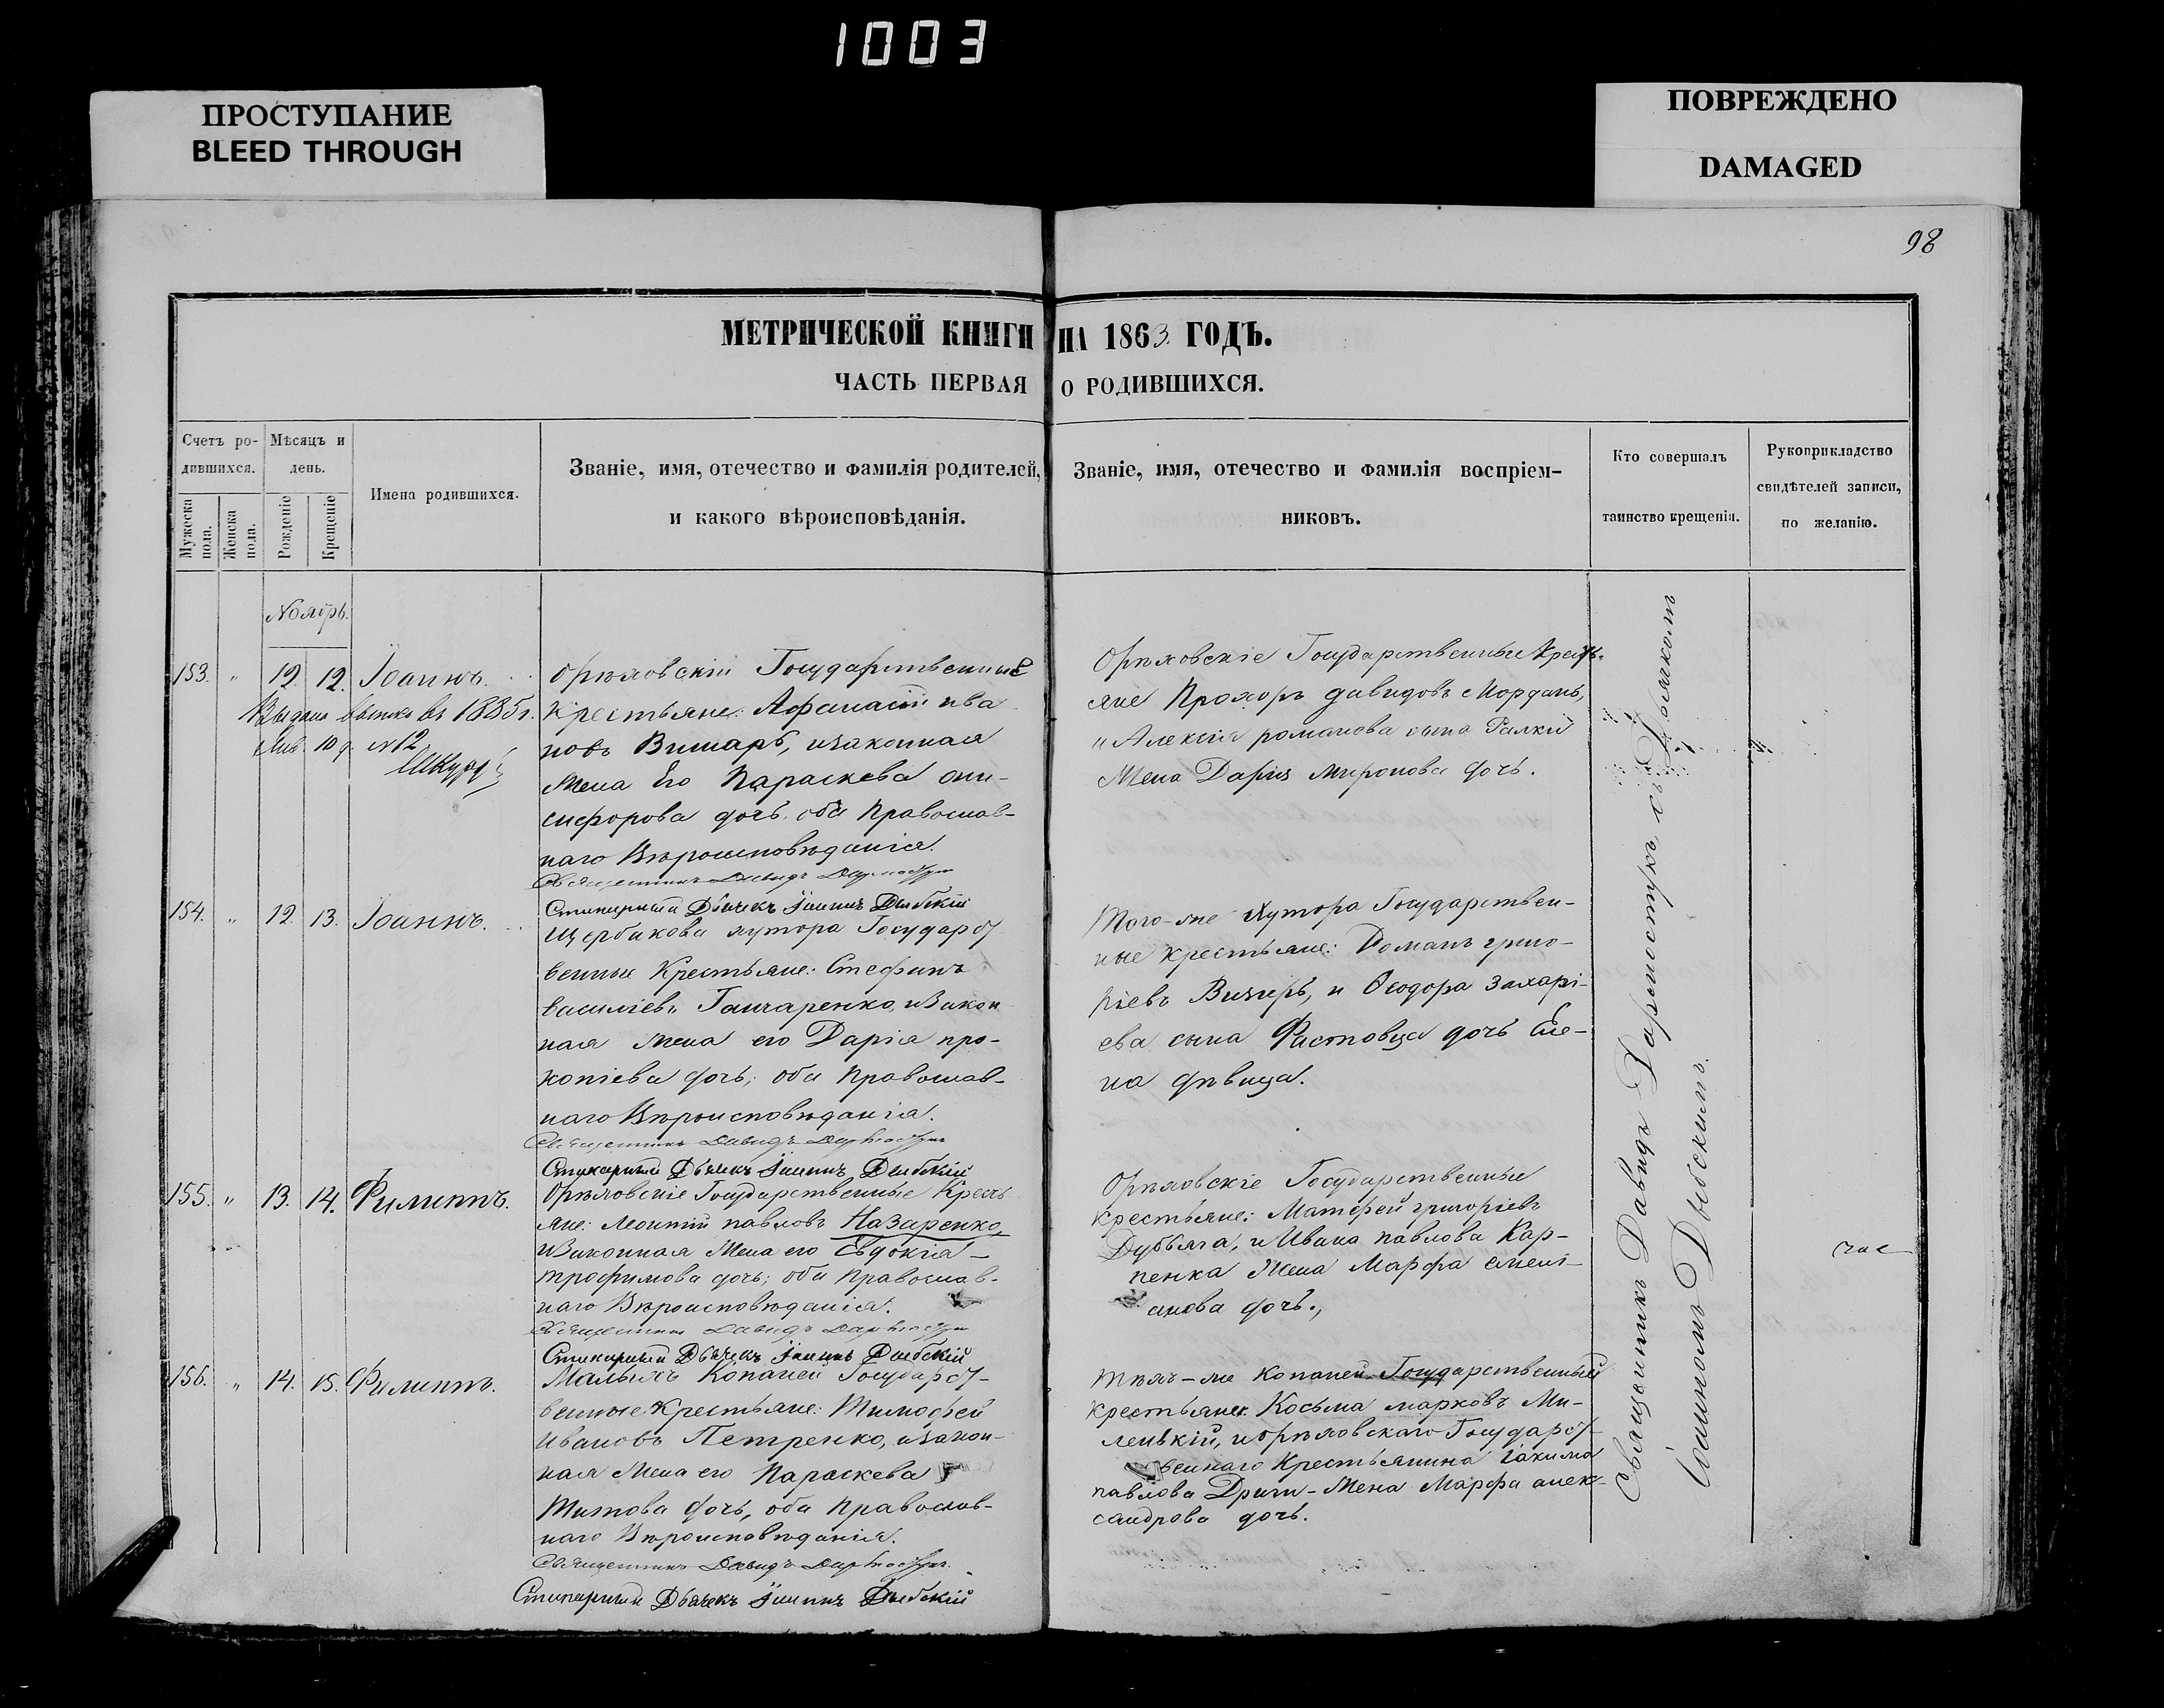 1003
ПРОСТУПАНИЕ
BLEED THROUGH
ПОВРЕЖДЕНО
DAMAGED
98
МЕТРИЧЕСКОЙ КНИГИ НА 1863 ГОДЪ.
ЧАСТЬ ПЕРВАЯ О РОДИВШИХСЯ.
Счетъ ро-
дившихся.
Мужеска
пола.
Женска
пола.
Мѣсяцъ и
день.
Рожденіе
Крещеніе
Имена родившихся.
Званіе, имя, отечество и фамилія родителей,
и какого вѣроисповѣданія.
Званіе, имя, отечество и фамилія воспріем-
никовъ.
Кто совершалъ
таинство крещенія.
Рукоприкладство
свидѣтелей записи,
по желанію.
Ноябрь.
153. " 12. 12. Іоаннъ.
въ 1885 г.
10 д. №12
Орѣховскіи Государственные
Крестьяне: Афанасій Ива
новъ Вишарь, изаконная
Жена Его Параскева Они-
сифорова дочь. оба Православ-
наго Вѣроисповѣданія.
Священникъ Давидъ
Стихарный Дьячекъ Іоаннъ Дыбскій
Орѣховскіе Государственные Кресть-
яне Прохоръ Давидовъ Мордань,
и Алексія романова сына Ралки
Жена Дарія Миронова дочь.
154. " 12. 13. Іоаннъ.
Щербакова хутора Государст
венные Крестьяне: Стефанъ
васильевъ Ганчаренко, изакон
ная Жена его Дарія про-
копіева дочь; оба Православ-
наго Вѣроисповѣданія.
Священникъ Давидъ
Стихарный Дьячекъ Іоаннъ Дыбскій
Того-же Хутора Государствен-
ные крестьяне: Романъ григо-
ріевъ и Ѳеодора Захарі-
ева сына Фастовца дочь Еле-
на дѣвица.
155. " 13. 14. Филиппъ.
Орѣховскіе Государственные Кресть
яне: Леонтій павловъ Назаренко,
изаконная Жена его Евдокія
трофимова дочь; оба Православ-
наго Вѣроисповѣданія.
Священникъ Давидъ
Стихарный Дьячекъ Іоаннъ Дыбскій
Орѣховскіе Государственные
крестьяне: Матфей григоріевъ
Дубьяга, и Ивана павлова Кар-
пенка Жена Марфа
анова дочь.,
156. " 14. 15. Филиппъ.
Малыхъ Копаней Государст-
венные Крестьяне: Тимофей
Ивановъ Петренко, изакон-
ная Жена его Параскева
Титова дочь, оба Православ-
наго Вѣроисповѣданія.
Священникъ Давидъ
Стихарный Дьячекъ Іоаннъ Дыбскій
Тѣхъ-же Копаней Государственный
крестьянинъ Косьма марковъ Ми-
ленькій, иорѣховскаго Государст-
веннаго Крестьянина Іакима
павлова Жена Марфа алек-
сандрова дочь.
Священникъ Давидъ съ Дьячкомъ
Іоанномъ Дыбскимъ.